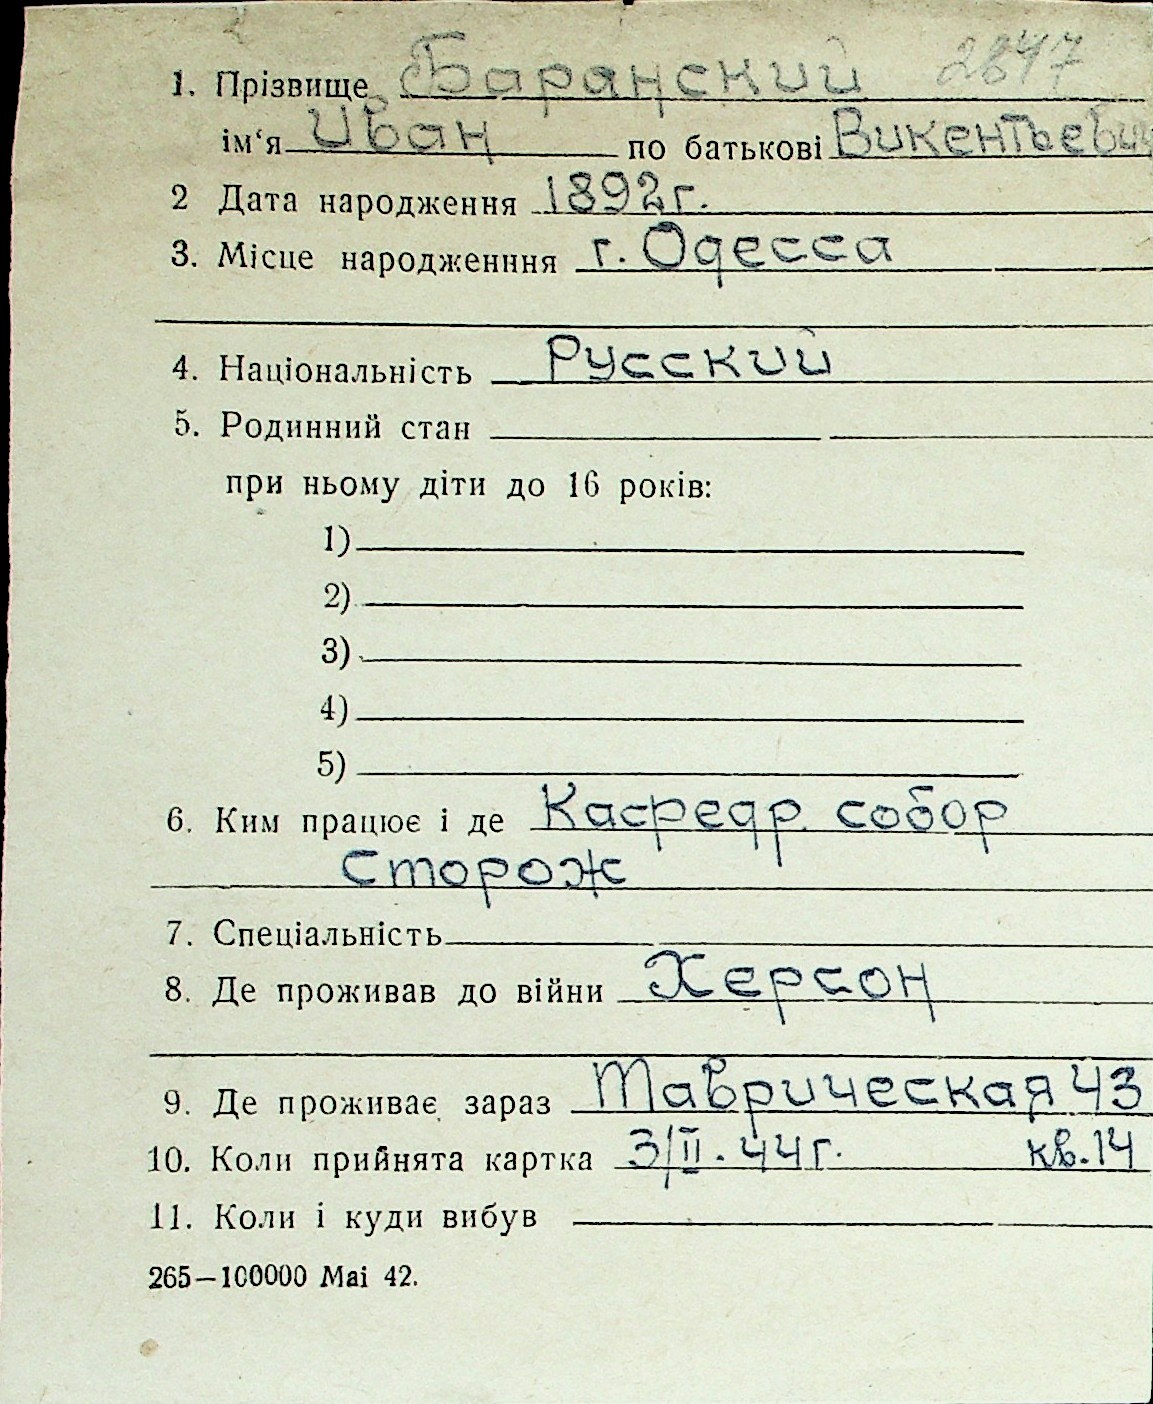 2847
1. Прізвище Баранский
ім‘я Иван по батькові Викентьевич
2 Дата народження 1892г.
3. Місце народженння г. Одесса
4. Національність Русский
5. Родинний стан
при ньому діти до 16 років:
1)
2)
3)
4)
5)
6. Ким працює і де Касредр. собор
сторож
7. Спеціальність
8. Де проживав до війни Херсон
9. Де проживає зараз Таврическая 43
10. Коли прийнята картка 3/II. 44г. кв.14
11. Коли і куди вибув
265—100000 Mai 42.